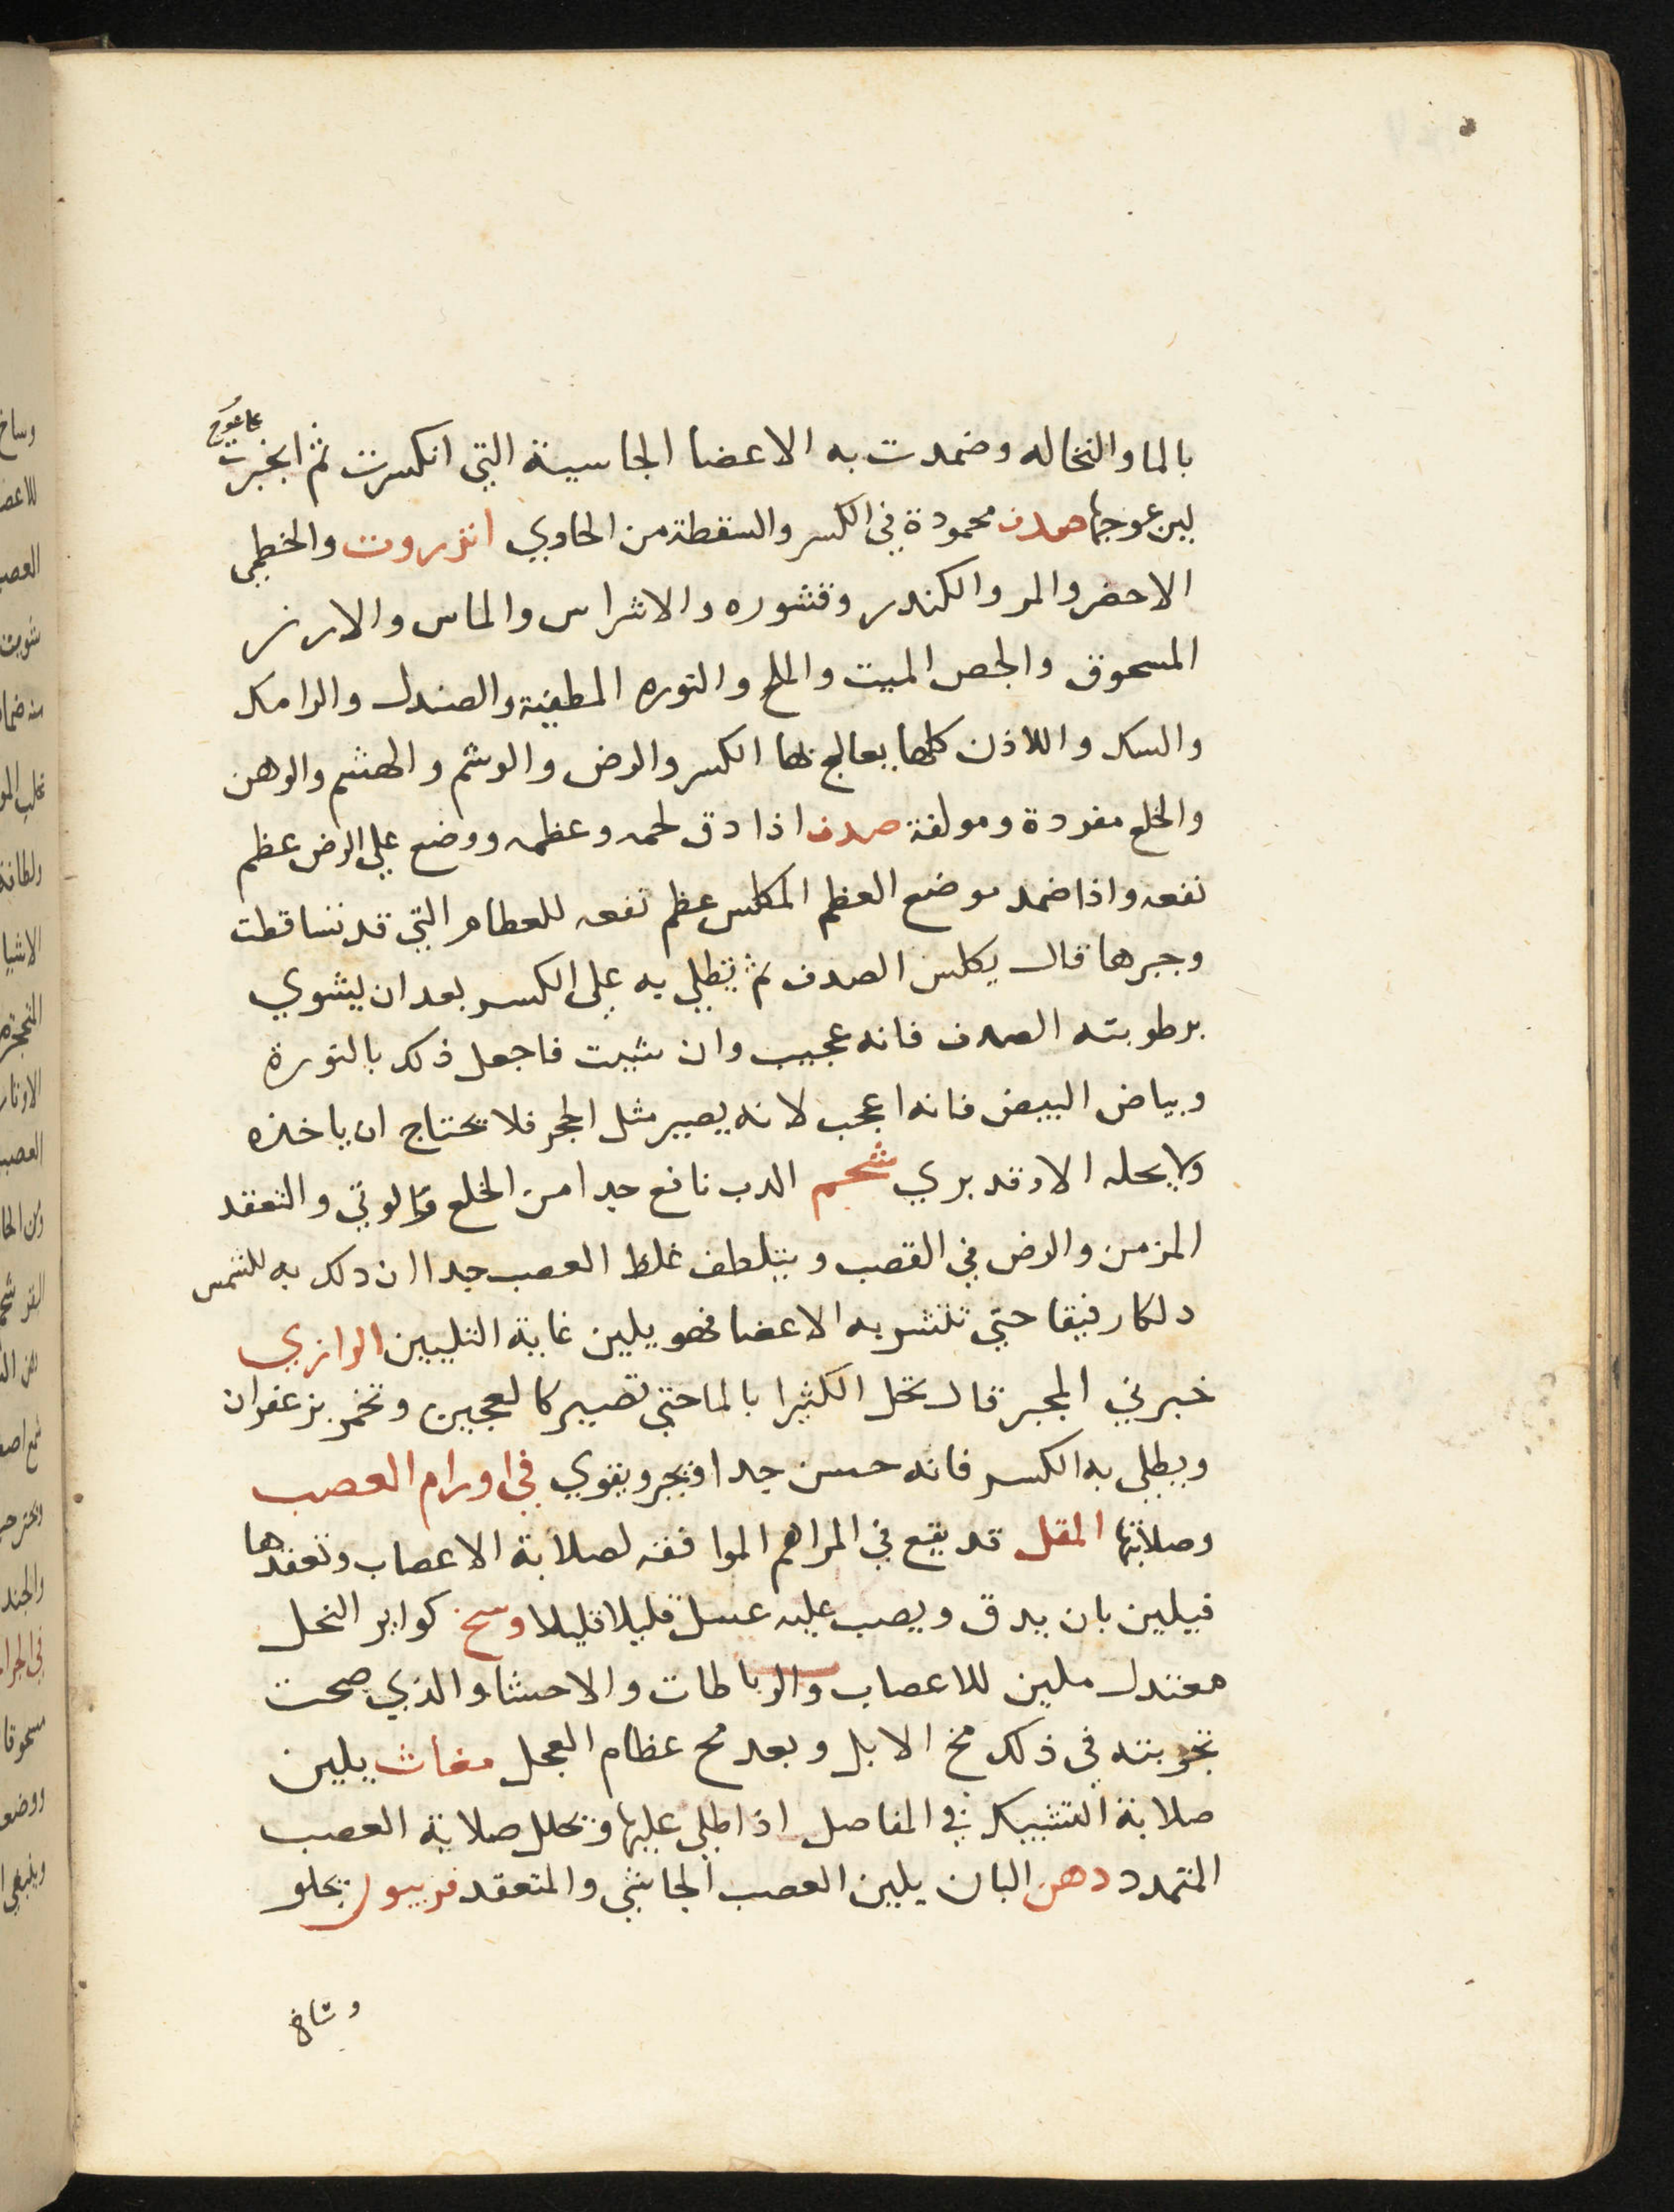 بالما والنخاله وضمدت به الاعضا الجاسية التي انكسرت ثم انجبرت
لين عوجها صدف محمودة في الكسر والسقطة من الحاوي انزروت والخطمي
الاخضر والمر والكندر وقشوره والاشراس والماس والارز
المسحوق والجص الميت والملح والنوره المطفية والصندل والرامك
والسك واللاذن كلها يعالج بها الكسر والرض والوشم والهشم والوهن
والخلع مفردة ومولفة صدف اذا دق لحمه وعظمه ووضع علي الرض عظم
نفعه واذا ضمد موضع العظم المكلس عظم نفعه للعظام التي قد تساقطت
وجبرها قال يكلس الصدف ثم يطلي به علي الكسر بعد ان يشوي
برطوبته الصدف فانه عجيب وان شيت فاجعل ذلك بالنورة
وبياض البيض فانه اعجب لانه يصير مثل الحجر فلا يحتاج ان ياخذه
ولا يحله الا وقد بري شحم الدب نافع جدا من الخلع والوثي والتعقد
المزمن والرض في القصب ويتلطف غلظ العصب جدا ان دلك به للشمس
دلكا رفيقا حتي تنشر به الاعضا فهو يلين غاية التليين الرازي
خبرني المجبر قال يحل الكثيرا بالما حتي تصير كالعجين وتخمر بزعفران
ويطلي به الكسر فانه حسن جدا ويجبر ويقوي في اورام العصب
وصلابتها المقل قد يقع في المراهم الموافقه لصلابة الاعصاب وتعقدها
فيلين بان يدق ويصب عليه عسل قليلا قليلا وسخ كواير النحل
معتدل ملين للاعصاب والرباطات والاحشا والذي صحت
تجربته في ذلك مخ الابل وبعد مخ عظام العجل مغاث يلين
صلابة التشبيك في المفاصل اذا طلي عليها ويحلل صلابة العصب
المتمدد دهن البان يلين العصب الجاشي والمتعقد فربيون يحلو